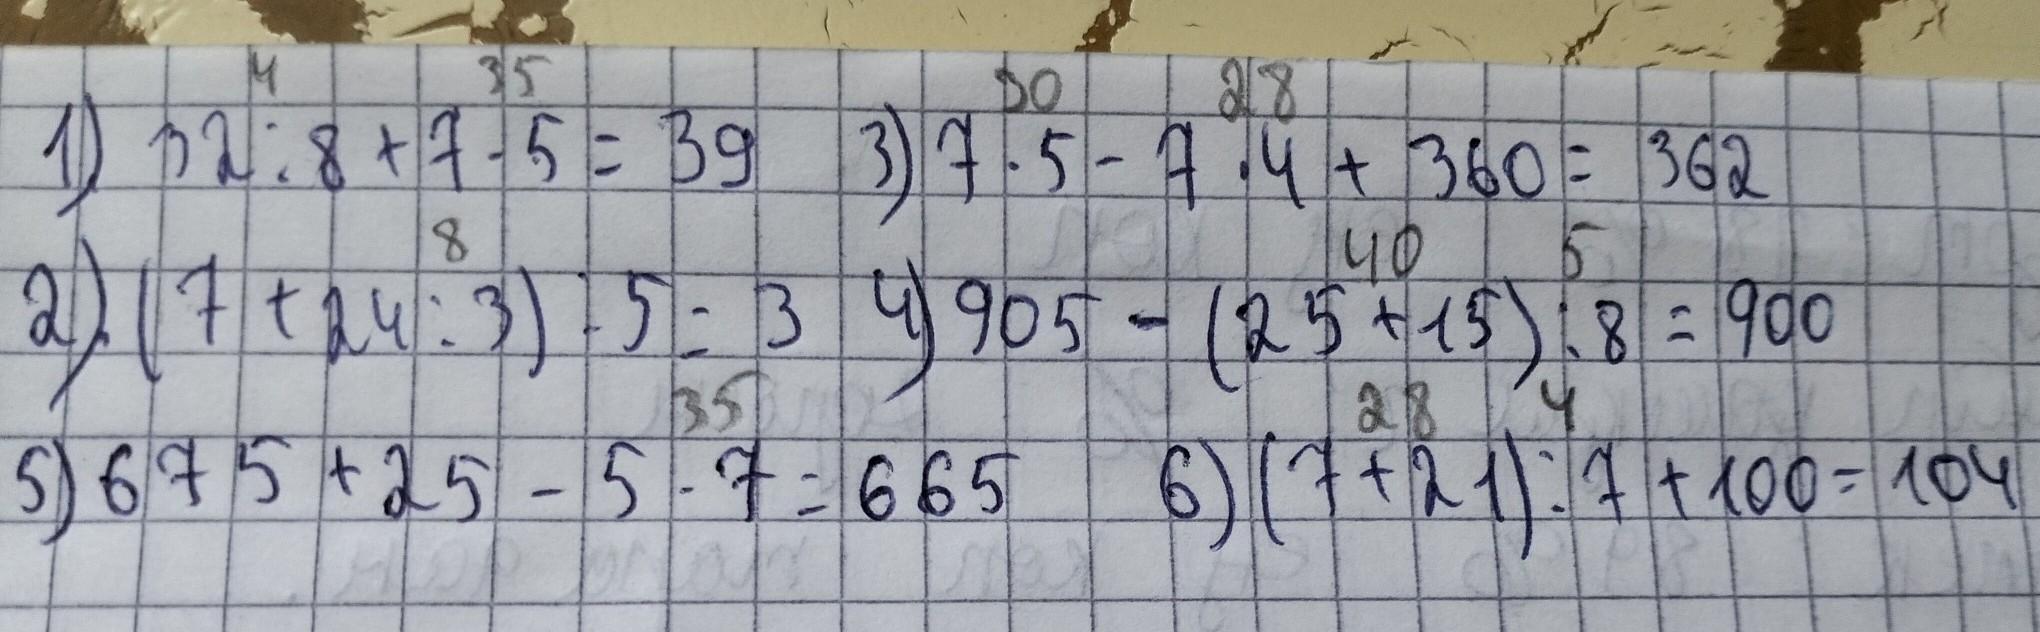 4 35 30 28
1) 32 : 8 + 7 · 5 = 39 3) 7 · 5 - 7 · 4 + 360 = 362
8 40 5
2) (7 + 24 : 3) : 5 = 3 4) 905 - (25 + 15) : 8 = 900
35 28 4
5) 675 + 25 - 5 · 7 = 665 6) (7 + 21) : 7 + 100 = 104